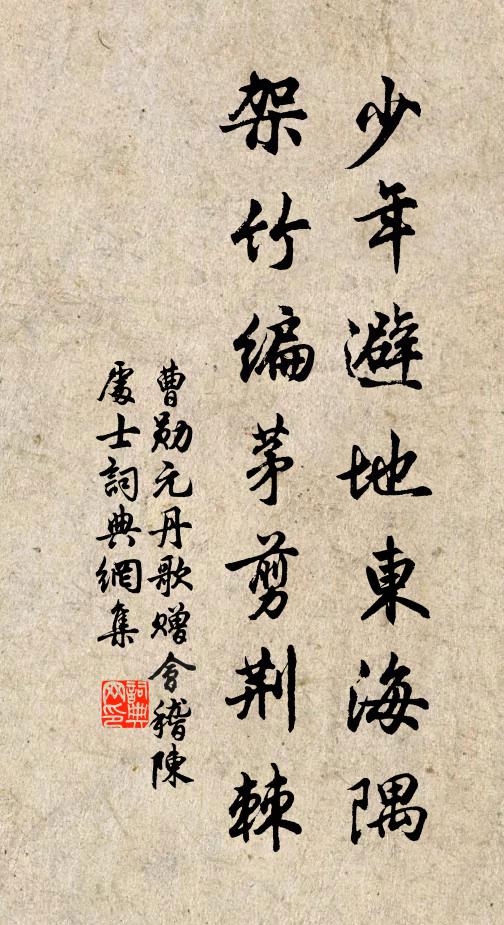 少年避地東海隅
架竹編茅剪荆棘
曹勛元丹歌贈會稽陳
處士詞典網集
詞典網印